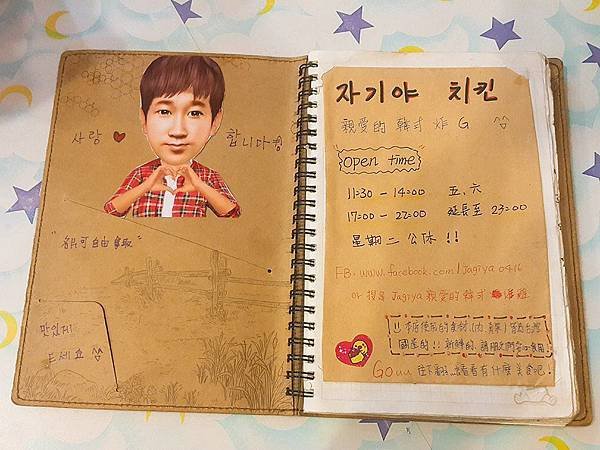 사랑 ♥ 합니다
"
都可自由取"
만인제
드세요 ^^
자기야 치킨
親愛的 韓式 炸 G ^^
open time
11:30 - 14:00 五、六
17:00 - 22:00 延長至 23:00
星期二公休!!
FB. www.facebook.com/Jagiya0416
or 搜尋 Jagiya 親愛的韓式
!! 本店使用的食材(肉、
國產的!! 新鮮的
Gouu 往下翻 看看有什麼美食吧!